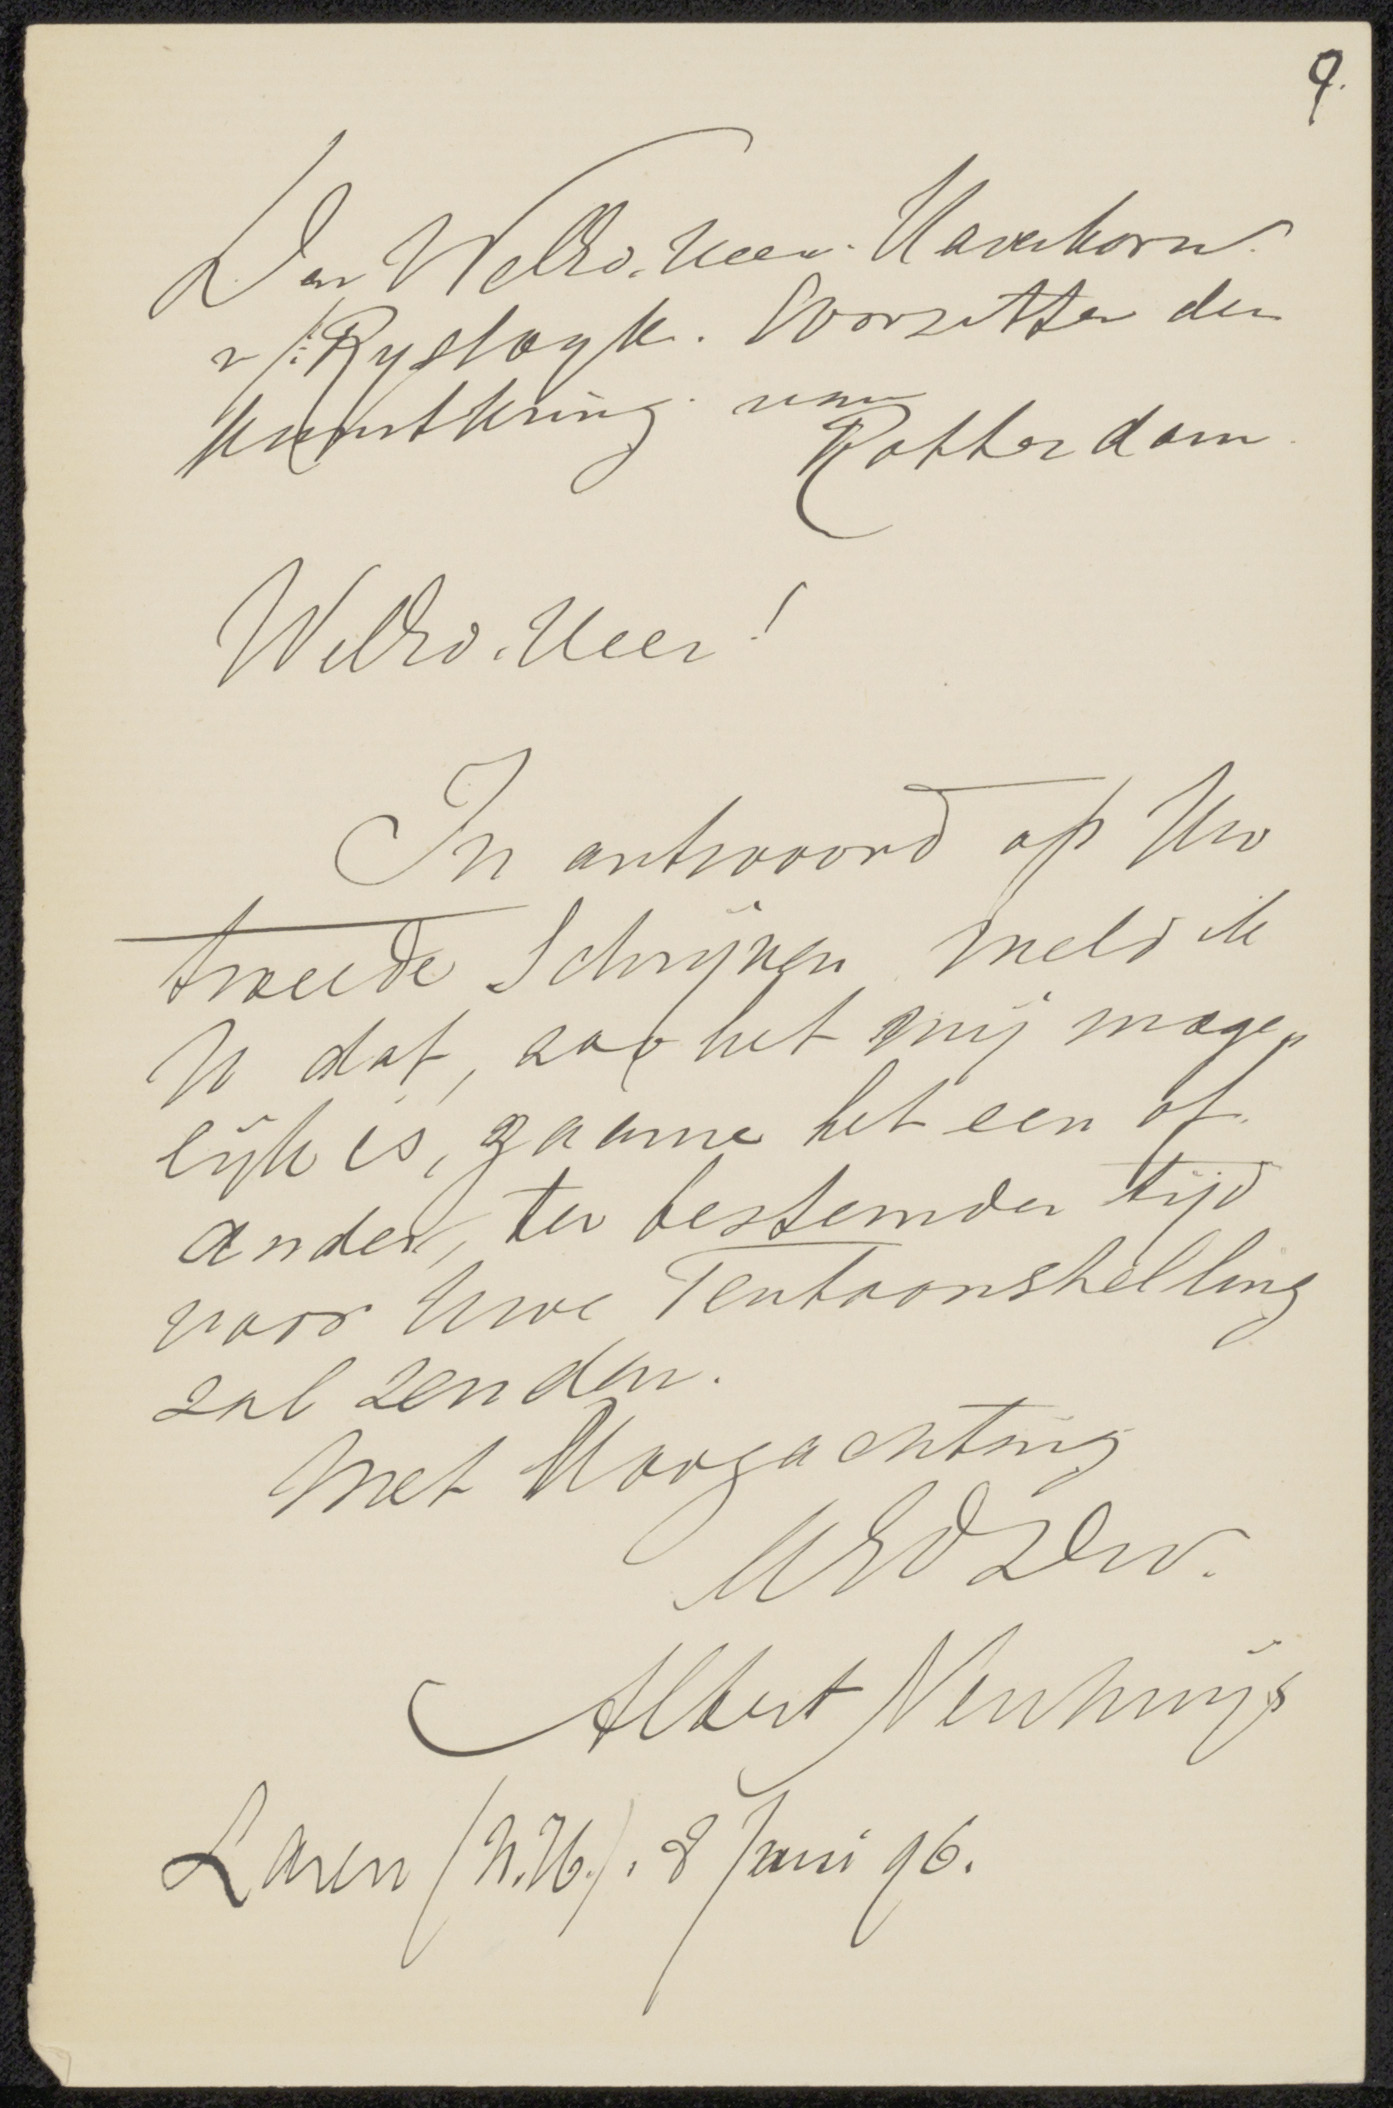 9.
Den WelEd. Heer. Haverkorn.
v/: Rysewyk. Voorzitter den
Kunstkring. van
Rotterdam.
WelEd. Heer!
In antwoord op Uw
tweede Schrijven meld ik
U dat, zoo het mij moge„
lijk is, gaarne het een of
ander, ter bestemder tijd
voor Uwe Tentoonstelling
zal zenden.
Met Hoogachting
UEdDw.
Albert Neuhuijs
Laren (N.H.). 8 Juni 96.